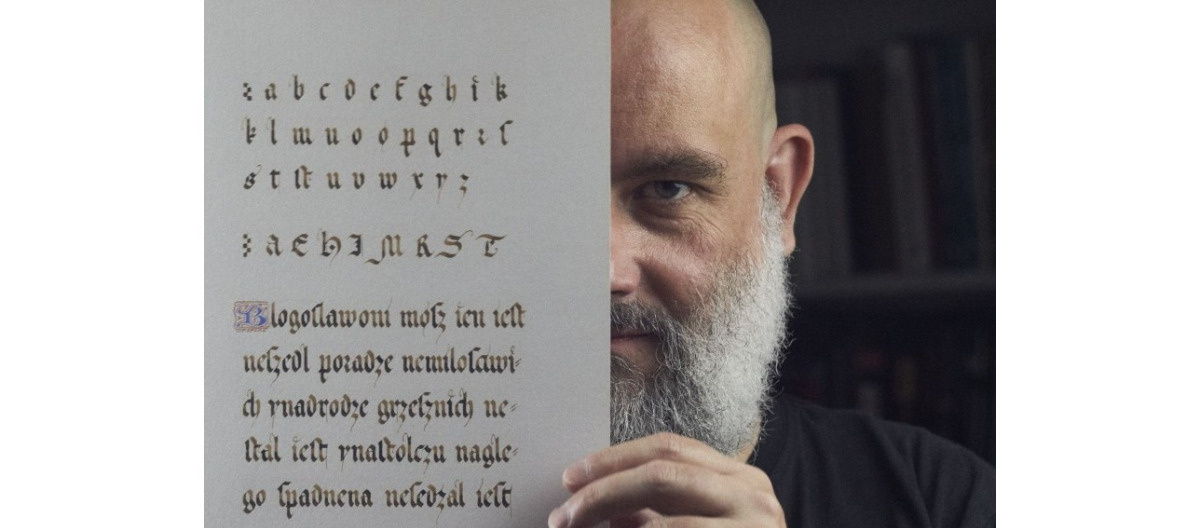 a b c d e f g h i k
k l m n o o p q r ꝛ ſ
s t ſt u v w x y z
a E H I M R S T
Blogoſlawoni moſz ien ieſt
neſzedl poradze nemiloſciwi⸗
ch ynadrodze grzeſznich ne⸗
ſtal ieſt ynaſtolczu nagle⸗
go ſpadnena neſedzal ieſt